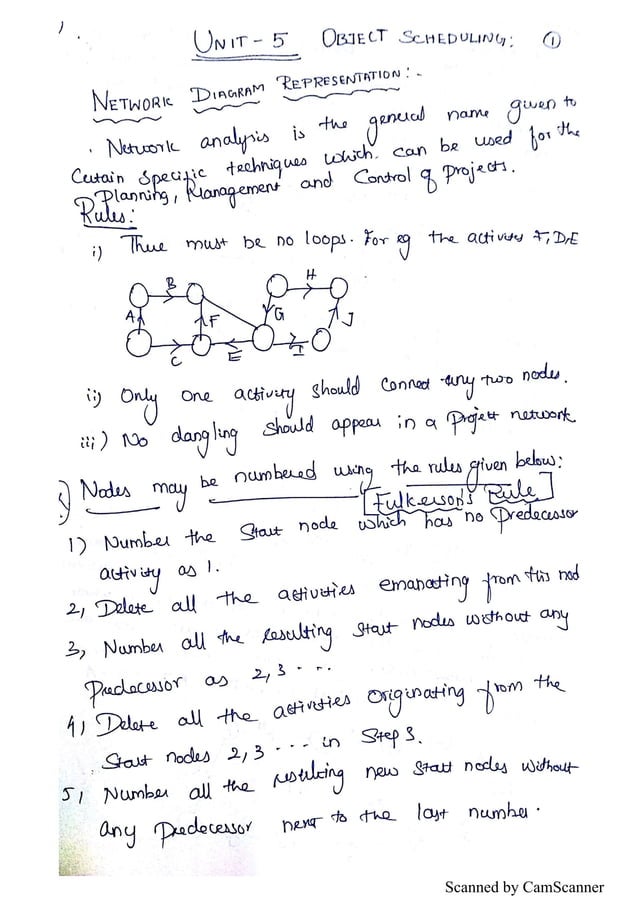 1.
UNIT - 5 OBJECT SCHEDULING: 1
NETWORK DIAGRAM REPRESENTATION:-
. Network analysis is the general name given to
Certain Specific techniques which. can be used for the
Planning, Management and Control of Projects.
Rules:
i) There must be no loops. For eg the activities F, D, E
B
H
A
F
G
J
C
E
I
ii) Only one activity should connect any two nodes.
iii) No dangling should appear in a Project network
Nodes may be numbered using the rules given below:
[Fulkerson's Rule]
1) Number the Start node which has no Predecessor
activity as 1.
2, Delete all the activities emanating from this nod
3, Number all the resulting Start nodes without any
Predecessor as 2,3 - ..
4) Delete all the activities originating from the
Start nodes 2,3 --- in Step 3.
5) Number all the resulting new Start nodes without
any Predecessor next to the last number.
Scanned by CamScanner